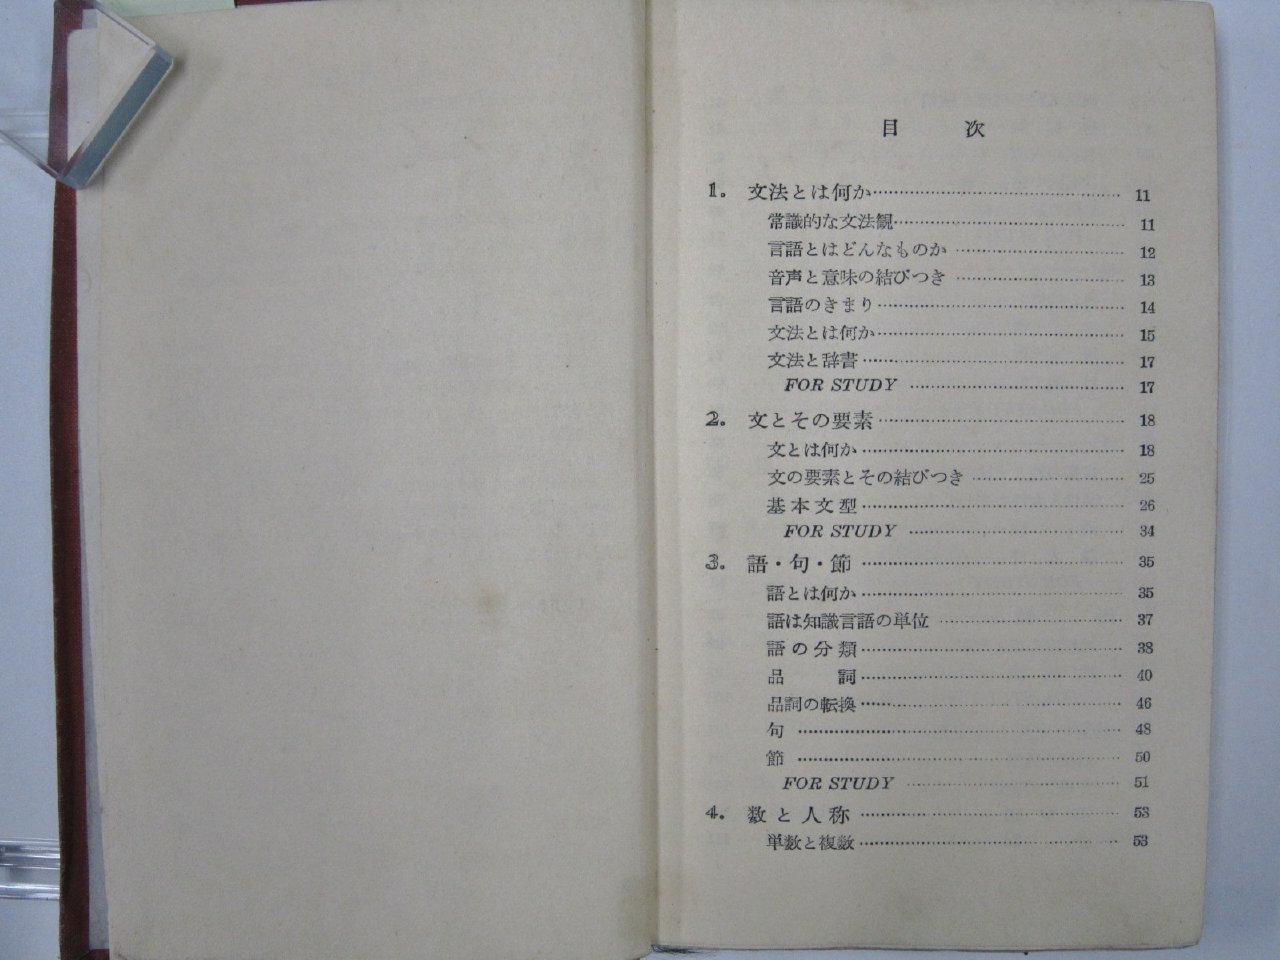 目次
1. 文法とは何か………………………………… 11
常識的な文法観………………………………… 11
言語とはどんなものか………………………………… 12
音声と意味の結びつき………………………………… 13
言語のきまり………………………………… 14
文法とは何か………………………………… 15
文法と辞書………………………………… 17
FOR STUDY………………………………… 17
2. 文とその要素………………………………… 18
文とは何か………………………………… 18
文の要素とその結びつき………………………………… 25
基本文型………………………………… 26
FOR STUDY………………………………… 34
3. 語・句・節………………………………… 35
語とは何か………………………………… 35
語は知識言語の単位………………………………… 37
語の分類………………………………… 38
品詞………………………………… 40
品詞の転換………………………………… 46
句………………………………… 48
節………………………………… 50
FOR STUDY………………………………… 51
4. 数と人称………………………………… 53
単数と複数………………………………… 53